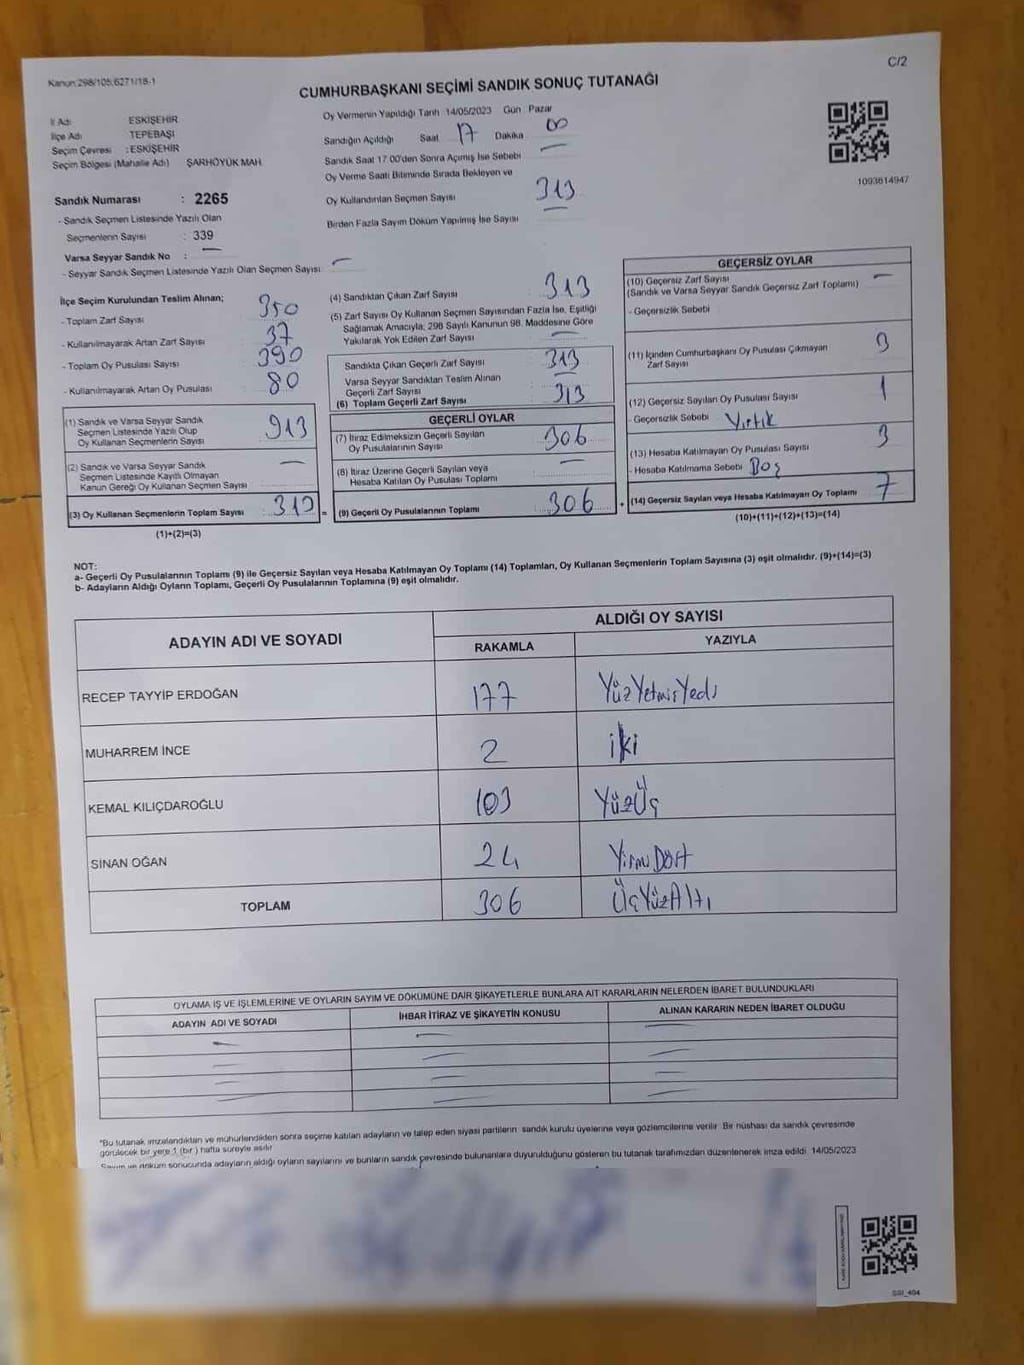 Kanun:298/105,6271/18-1
C/2
CUMHURBAŞKANI SEÇİMİ SANDIK SONUÇ TUTANAĞI
İl Adı : ESKİŞEHİR
İlçe Adı : TEPEBAŞI
Seçim Çevresi : ESKİŞEHİR
Seçim Bölgesi (Mahalle Adı) ŞARHÖYÜK MAH.
Sandık Numarası : 2265
- Sandık Seçmen Listesinde Yazılı Olan
Seçmenlerin Sayısı : 339
Varsa Seyyar Sandık No : —
- Seyyar Sandık Seçmen Listesinde Yazılı Olan Seçmen Sayısı: —
Oy Vermenin Yapıldığı Tarih 14/05/2023 Gün Pazar
Sandığın Açıldığı Saat 17 Dakika 00
Sandık Saat 17.00'den Sonra Açılmış İse Sebebi —
Oy Verme Saati Bitiminde Sırada Bekleyen ve
Oy Kullandırılan Seçmen Sayısı 313
Birden Fazla Sayım Döküm Yapılmış İse Sayısı —
1093614947
İlçe Seçim Kurulundan Teslim Alınan;
- Toplam Zarf Sayısı 350
- Kullanılmayarak Artan Zarf Sayısı 37
- Toplam Oy Pusulası Sayısı 390
- Kullanılmayarak Artan Oy Pusulası 80
(1) Sandık ve Varsa Seyyar Sandık
Seçmen Listesinde Yazılı Olup
Oy Kullanan Seçmenlerin Sayısı 313
(2) Sandık ve Varsa Seyyar Sandık
Seçmen Listesinde Kayıtlı Olmayan
Kanun Gereği Oy Kullanan Seçmen Sayısı —
(3) Oy Kullanan Seçmenlerin Toplam Sayısı 313 =
(1)+(2)=(3)
(4) Sandıktan Çıkan Zarf Sayısı 313
(5) Zarf Sayısı Oy Kullanan Seçmen Sayısından Fazla İse, Eşitliği
Sağlamak Amacıyla; 298 Sayılı Kanunun 98. Maddesine Göre
Yakılarak Yok Edilen Zarf Sayısı —
Sandıkta Çıkan Geçerli Zarf Sayısı 313
Varsa Seyyar Sandıktan Teslim Alınan
Geçerli Zarf Sayısı —
(6) Toplam Geçerli Zarf Sayısı 313
GEÇERLİ OYLAR
(7) İtiraz Edilmeksizin Geçerli Sayılan
Oy Pusulalarının Sayısı 306
(8) İtiraz Üzerine Geçerli Sayılan veya
Hesaba Katılan Oy Pusulası Toplamı —
(9) Geçerli Oy Pusulalarının Toplamı 306 +
GEÇERSİZ OYLAR
(10) Geçersiz Zarf Sayısı —
(Sandık ve Varsa Seyyar Sandık Geçersiz Zarf Toplamı)
- Geçersizlik Sebebi
(11) İçinden Cumhurbaşkanı Oy Pusulası Çıkmayan
Zarf Sayısı 3
(12) Geçersiz Sayılan Oy Pusulası Sayısı 1
- Geçersizlik Sebebi Yırtık
(13) Hesaba Katılmayan Oy Pusulası Sayısı 3
- Hesaba Katılmama Sebebi Boş
(14) Geçersiz Sayılan veya Hesaba Katılmayan Oy Toplamı 7
(10)+(11)+(12)+(13)=(14)
NOT:
a- Geçerli Oy Pusulalarının Toplamı (9) ile Geçersiz Sayılan veya Hesaba Katılmayan Oy Toplamı (14) Toplamları, Oy Kullanan Seçmenlerin Toplam Sayısına (3) eşit olmalıdır. (9)+(14)=(3)
b- Adayların Aldığı Oyların Toplamı, Geçerli Oy Pusulalarının Toplamına (9) eşit olmalıdır.
ADAYIN ADI VE SOYADI
ALDIĞI OY SAYISI
RAKAMLA YAZIYLA
RECEP TAYYİP ERDOĞAN 177 YüzYetmişYedi
MUHARREM İNCE 2 iki
KEMAL KILIÇDAROĞLU 103 YüzÜç
SİNAN OĞAN 24 YirmiDört
TOPLAM 306 ÜçYüzAltı
OYLAMA İŞ VE İŞLEMLERİNE VE OYLARIN SAYIM VE DÖKÜMÜNE DAİR ŞİKAYETLERLE BUNLARA AİT KARARLARIN NELERDEN İBARET BULUNDUKLARI
ADAYIN ADI VE SOYADI İHBAR İTİRAZ VE ŞİKAYETİN KONUSU ALINAN KARARIN NEDEN İBARET OLDUĞU
"Bu tutanak imzalandıktan ve mühürlendikten sonra seçime katılan adayların ve talep eden siyasi partilerin sandık kurulu üyelerine veya gözlemcilerine verilir. Bir nüshası da sandık çevresinde
görülecek bir yere 1 (bir) hafta süreyle asılır.
Sayım ve döküm sonucunda adayların aldığı oyların sayılarını ve bunların sandık çevresinde bulunanlara duyurulduğunu gösteren bu tutanak tarafımızdan düzenlenerek imza edildi. 14/05/2023
SSI_404